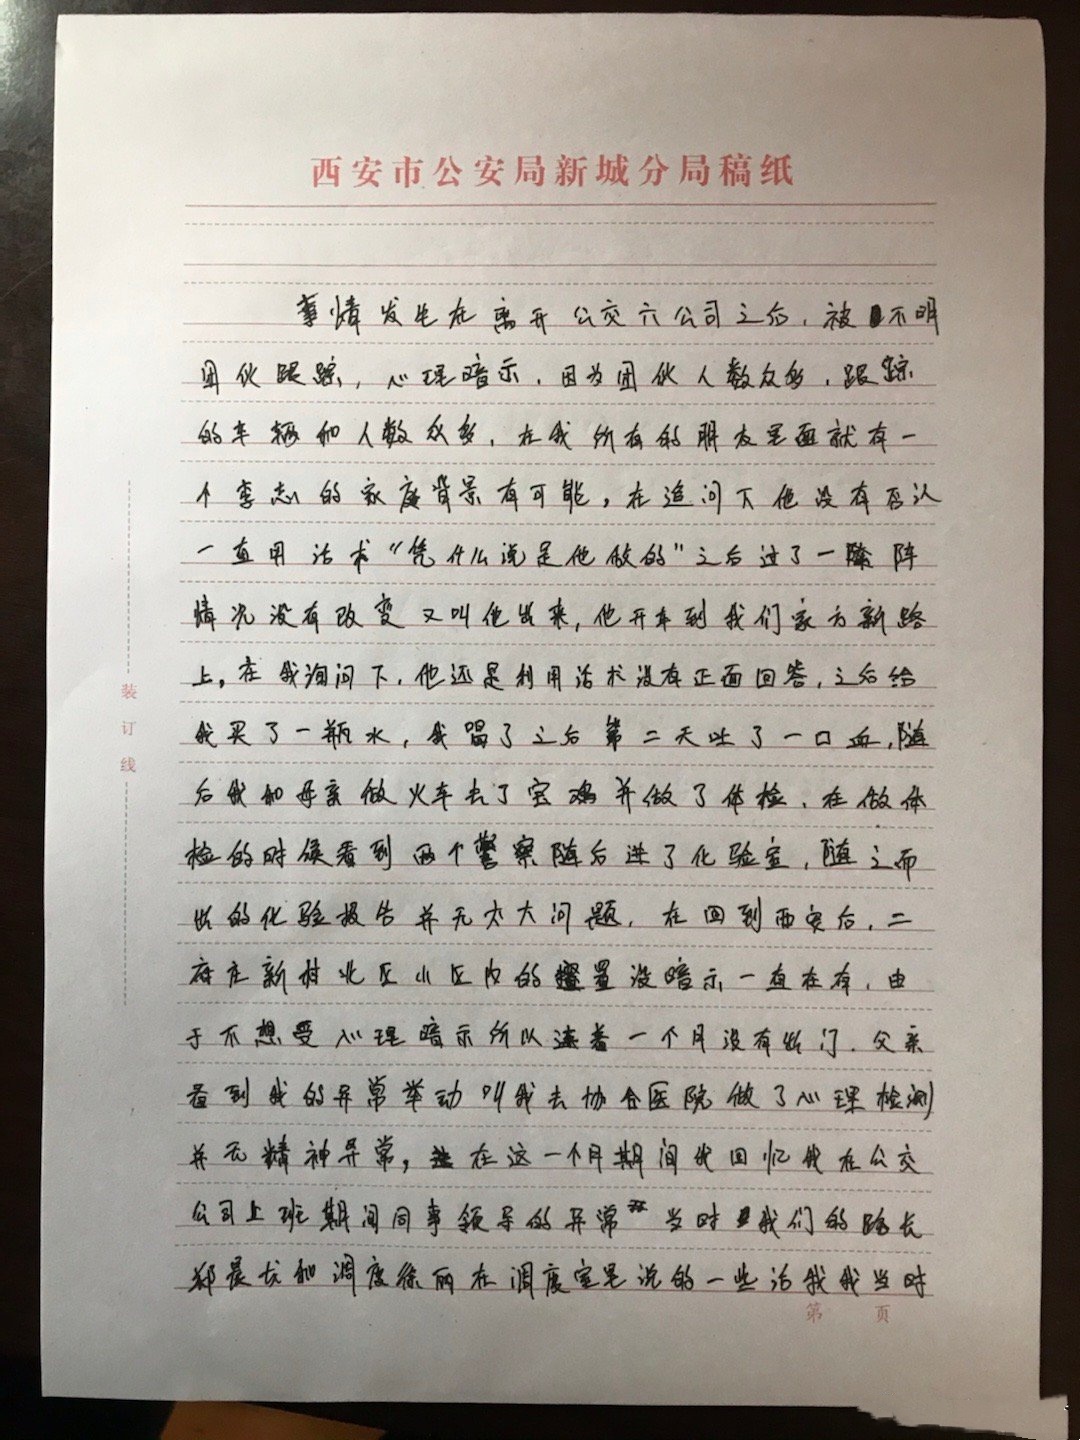 西安市公安局新城分局稿纸
事情发生在离开公交六公司之后，被不明
团伙跟踪，心理暗示，因为团伙人数众多，跟踪
的车辆和人数众多，在我所有的朋友里面就有一
个李志的家庭背景有可能，在追问下他没有否认
一直用话术“凭什么说是他做的”之后过了一阵
情况没有改变又叫他出来，他开车到我们家方新路
上，在我询问下，他还是利用话术没有正面回答，之后给
我买了一瓶水，我喝了之后第二天吐了一口血，随
后我和母亲做火车去了宝鸡并做了体检，在做体
检的时候看到两个警察随后进了化验室，随之而
出的化验报告并无太大问题，在回到西安后，二
府庄新村北区小区内的置没暗示一直在有，由
于不想受心理暗示所以连着一个月没有出门，父亲
看到我的异常举动叫我去协合医院做了心理检测
并无精神异常，在这一个月期间我回忆我在公交
公司上班期间同事领导的异常 当时我们的路长
郑晨龙和调度徐丽在调度室里说的一些话我我当时
装订线
第 页